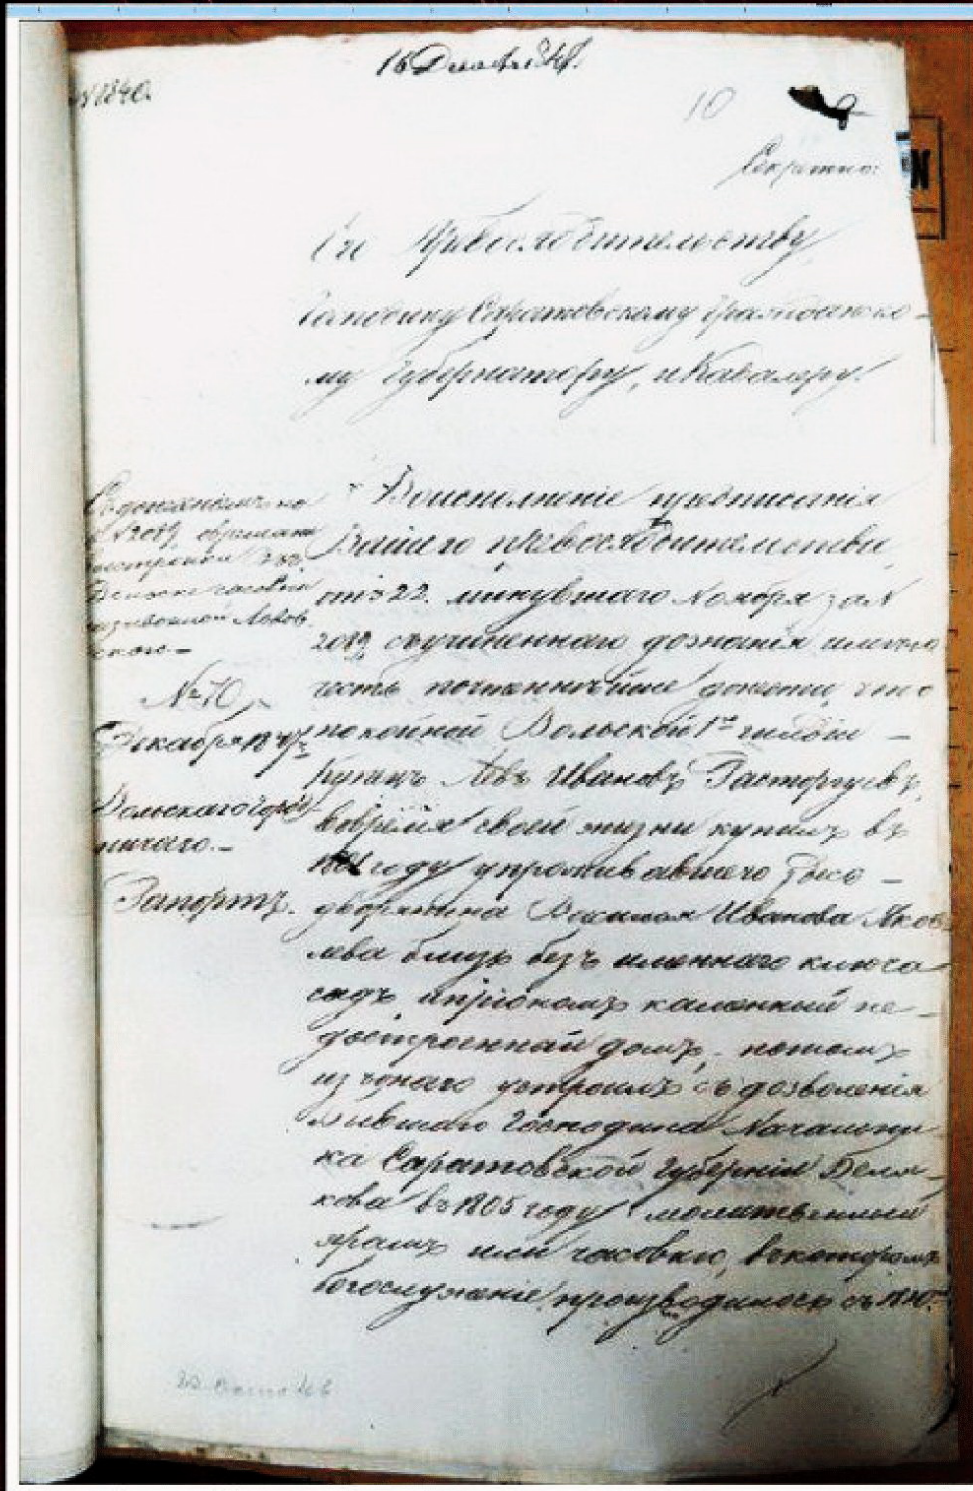 15 Декабря 1847.
№ 1840.
10
Секретно:
Его Превосходительству
Господину Саратовскому Гражданско-
му Губернатору, и Кавалеру.
Съ дознаніемъ по
№ 2089
часовни
№ 70
Декабря 1847
Вольскаго Город-
ничаго.-
Рапортъ.
Во исполненіе предписанія
Вашего превосходительства,
отъ 22. минувшаго Ноября за N
2089, съучиненнаго дознанія имею
честь почтеннейше донести, что
покойной Вольской 1й гильдіи -
Купецъ Левъ Ивановъ Расторгуевъ,
вовремя своей жизни купилъ въ
году упроживавшего здесь -
дворянина Василья Иванова Яков-
лева близь безъименнаго ключа
садъ, и при томъ каменный не-
достроенный домъ, потомъ
изъ онаго устроилъ съ дозволенія
бывшаго Господина Начальни-
ка Саратовской Губерніи Беля-
кова въ 1805 году молитвенный
храмъ или часовню, въ которомъ
богослуженіе производилось съ